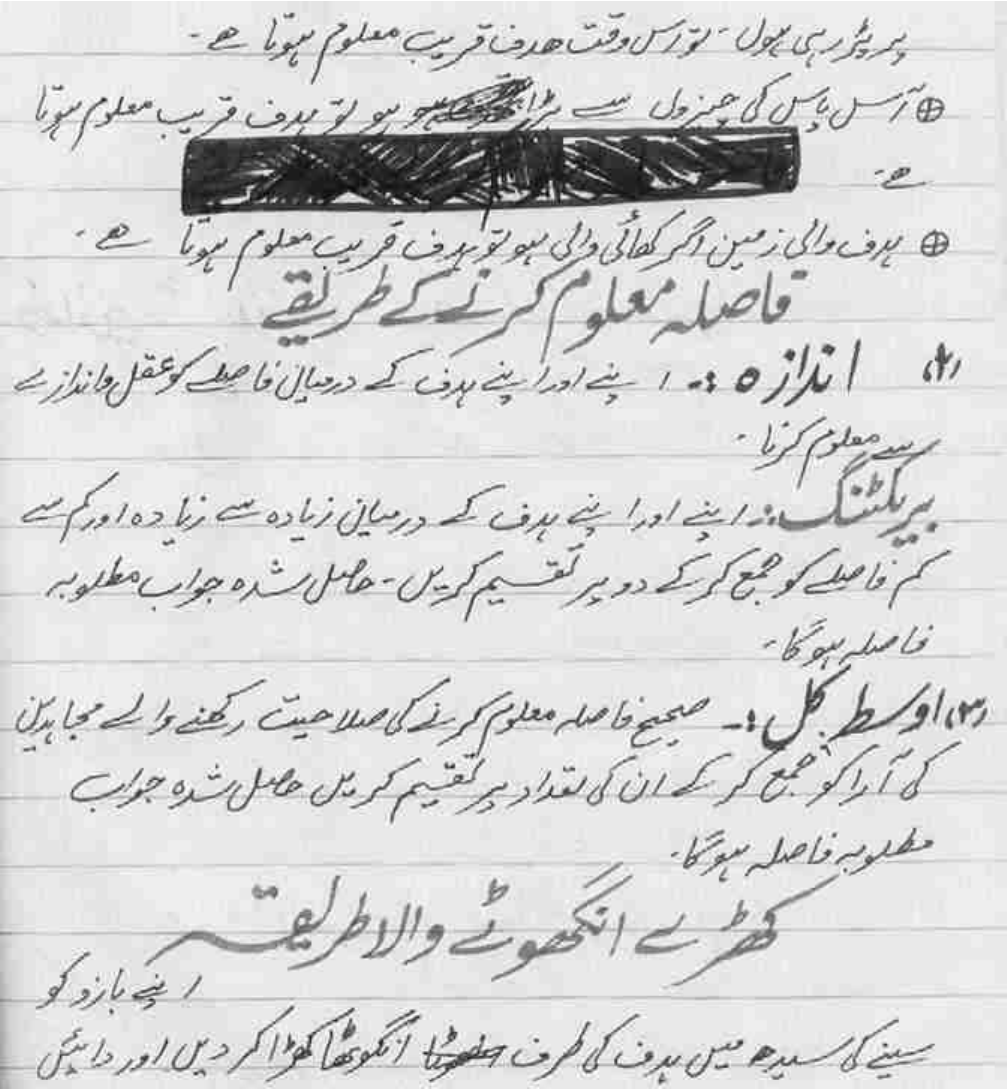 پر پڑ رہی ہوں۔ تو اس وقت ھدف قریب معلوم ہوتا ھے۔
⊕ آس پاس کی چیزوں سے بڑا ہو تو ہدف قریب معلوم ہوتا
ھے۔
⊕ ہدف والی زمین اگر کھائی والی ہو تو ہدف قریب معلوم ہوتا ھے۔
فاصلہ معلوم کرنے کے طریقے
(۱) اندازہ :۔ اپنے اور اپنے ہدف کے درمیان فاصلے کو عقل و اندازے
سے معلوم کرنا۔
بریکٹنگ :۔ اپنے اور اپنے ہدف کے درمیان زیادہ سے زیادہ اور کم سے
کم فاصلے کو جمع کر کے دو پر تقسیم کریں۔ حاصل شدہ جواب مطلوبہ
فاصلہ ہوگا۔
(۳) اوسط کل :۔ صحیح فاصلہ معلوم کرنے کی صلاحیت رکھنے والے مجاہدین
کی آرا کو جمع کر کے ان کی تعداد پر تقسیم کریں حاصل شدہ جواب
مطلوبہ فاصلہ ہوگا۔
کھڑے انگھوٹے والا طریقہ
اپنے بازو کو
سینے کی سیدھ میں ہدف کی طرف انگوٹھا کھڑا کر دیں اور دائیں